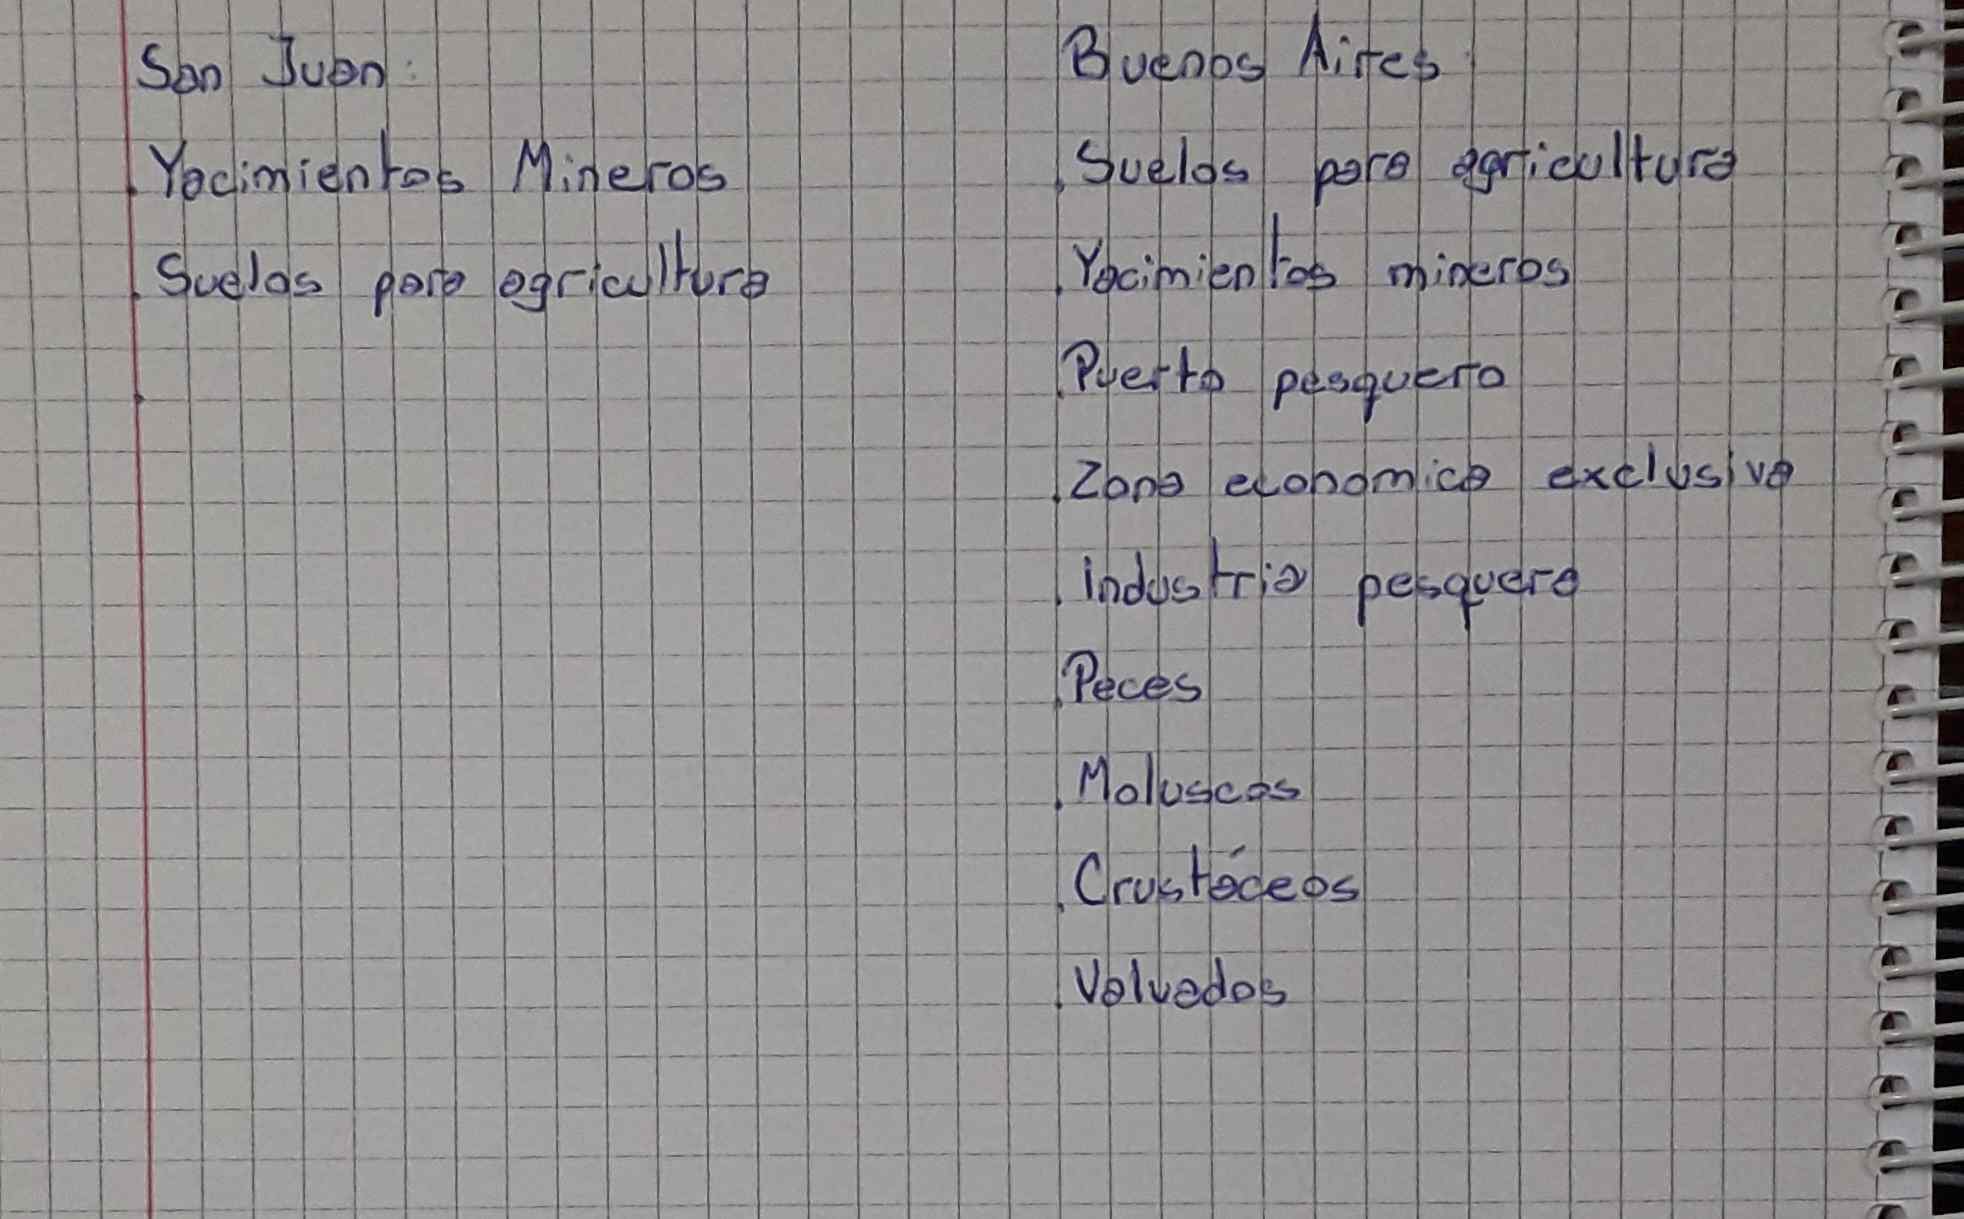 San Juan:
. Yacimientos Mineros
. Suelos para agricultura
.
Buenos Aires:
. Suelos para agricultura
. Yacimientos mineros
. Puerto pesquero
. Zona economica exclusiva
. industria pesquera
. Peces
. Moluscos
. Crustáceos
. Valvados